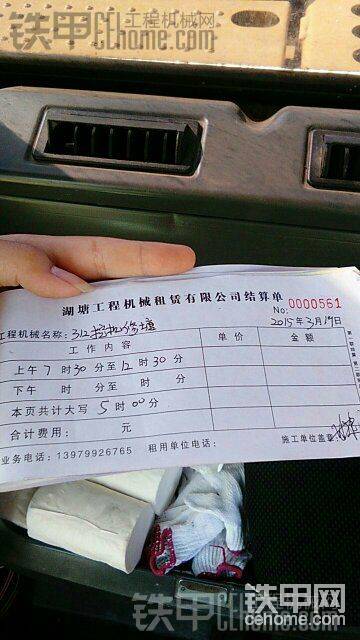 铁甲工程机械网
cehome.com
湖塘工程机械租赁有限公司结算单
No: 0000561
2015年3月19日
工程机械名称: 312挖机修塘
工作内容 单价 金额
上午7时30分至12时30分
下午 时 分至 时 分
本页共计大写 5时00分
合计费用: 元
业务电话: 13979926765 租用单位电话: 施工单位盖章
铁甲网
cehome.com
铁甲
cehome